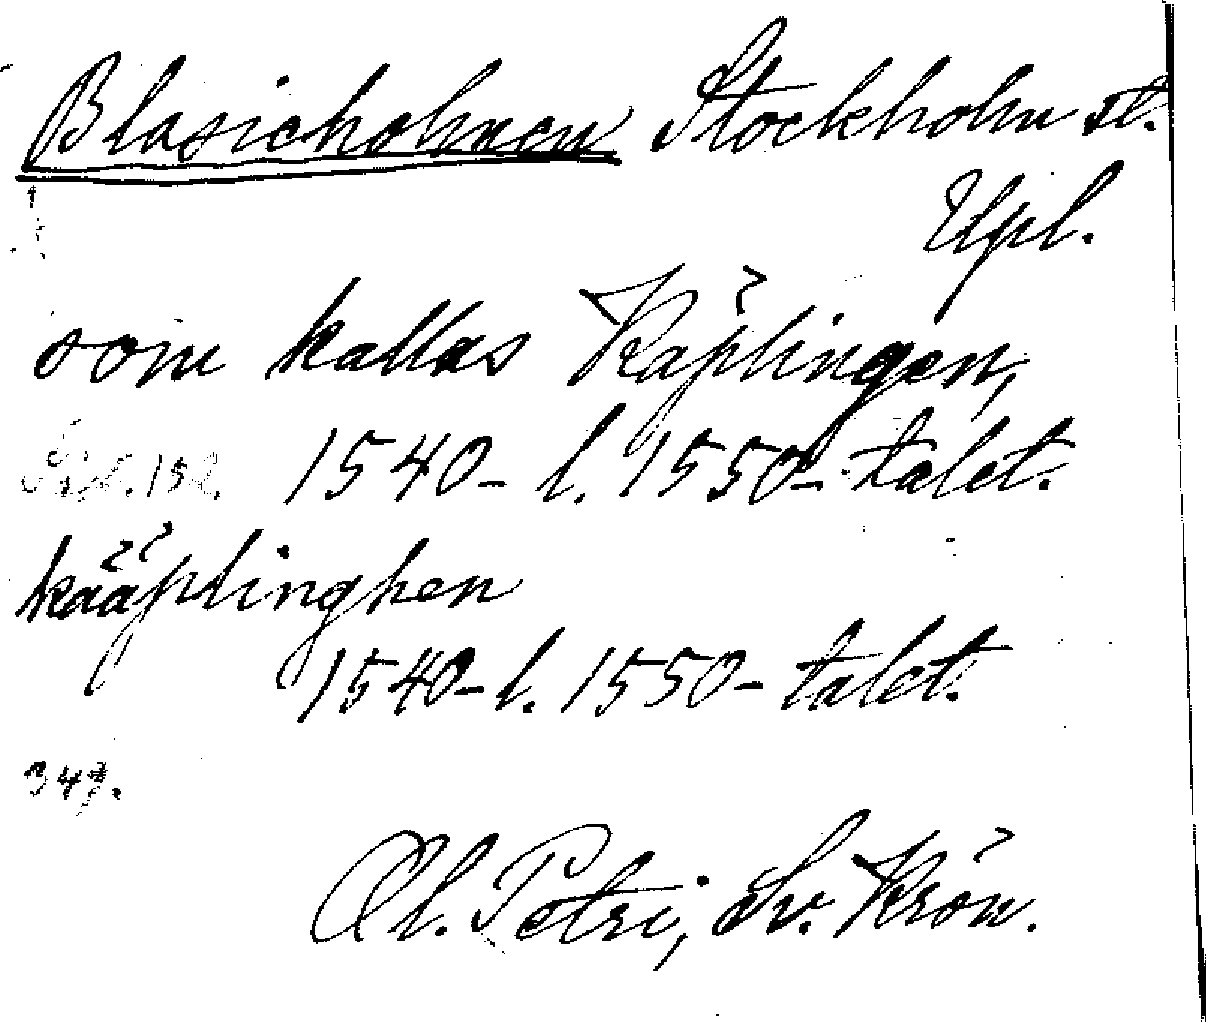 Blasieholmen Stockholm st.
Upl.
som kallas Käplingen,
1540- l. 1550-talet.
kääplinghen
1540-l. 1550-talet.
347.
Ol. Petri, Sv. Krön.